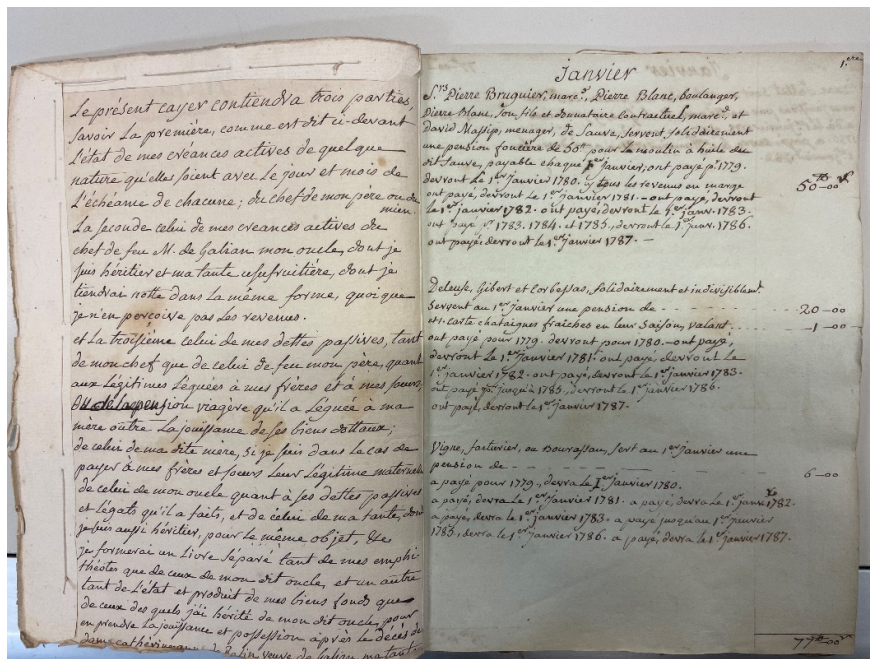 Le présent cayer contiendra trois parties,
savoir La premiére, comme est dit ci-devant
L'état de mes créances actives de quelque
nature qu'elles soient avec Le jour et mois de
L'échéance de chacune; du chef de mon père ou du
mien.
La seconde celui de mes creances actives du
chef de feu M. de Galian mon oncle, dont je
suis héritier et ma tante usufruitiére, dont je
tiendrai notte dans La même forme, quoi que
je n'en perçoive pas Les revenus.
et La troisiéme celui de mes dettes passives, tant
de mon chef que de celui de feu mon père, quant
aux Légitimes Léguées à mes frères et à mes soeurs,
de la pension viagère qu'il a Léguée à ma
mère outre La jouissance de ses biens dottaux;
de celui de ma dite mère, si je suis dans Le cas de
payer à mes frères et soeurs Leur Légitime maternelle
de celui de mon oncle quant à ses dettes passives
et Légats qu'il a faits, et de celui de ma tante, dont
je suis aussi héritier, pour Le même objet, &c
je formerai un Livre séparé tant de mes emphi-
théotes que de ceux de mon dit oncle, et un autre
tant de L'état et produit de mes biens fonds que
de ceux des quels j'ai hérité de mon dit oncle, pour
en prendre La jouissance et possession après le décès de
veuve de Galian, ma tante.
1.ere
Janvier
S.rs Pierre Bruguier, marc.d, Pierre Blanc, boulanger,
Pierre Blanc, son fils et donataire contractuel, marc.d, et
David Massip, menager, de Sauve, servent solidairement
une pension fonciére de 50tt pour Le moulin à huile du
dit Sauve, payable chaque 1er janvier, ont payé pr 1779.
devront Le 1.er janvier 1780. y tous les revenus en marge 50-00
ont payé, devront Le 1.er janvier 1781. - ont payé, devront
Le 1.er janvier 1782. ont payé, devront Le 1.er janv. 1783.
ont payé pr 1783. 1784. et 1785, devront Le 1.er janv. 1786.
ont payé, devront Le 1.er janvier 1787. -
Deleuse, Gibert et Corbessas, solidairement et indivisiblemt.
servent au 1.er janvier une pension de 20-00
et 1. carte chataignes fraiches en Leur saison, valant 1-00
ont payé pour 1779. devront pour 1780. - ont payé,
devront Le 1.er janvier 1781. ont payé, devront Le
1.er janvier 1782. ont payé, devront Le 1.er janvier 1783.
ont payé jusqu'à 1785, devront Le 1.er janvier 1786.
ont payé, devront Le 1.er janvier 1787.
Vigne, facturier, ou Bourassan, sert au 1.er janvier une
pension de 6-00
a payé pour 1779., devra Le 1.er janvier 1780.
a payé, devra Le 1.er janvier 1781. a payé, devra Le 1.er janv. 1782.
a payé, devra Le 1.er janvier 1783. a payé jusqu'au 1.er janvier
1785, devra Le 1.er janvier 1786. a payé, devra Le 1.er janvier 1787.
77tt-00s